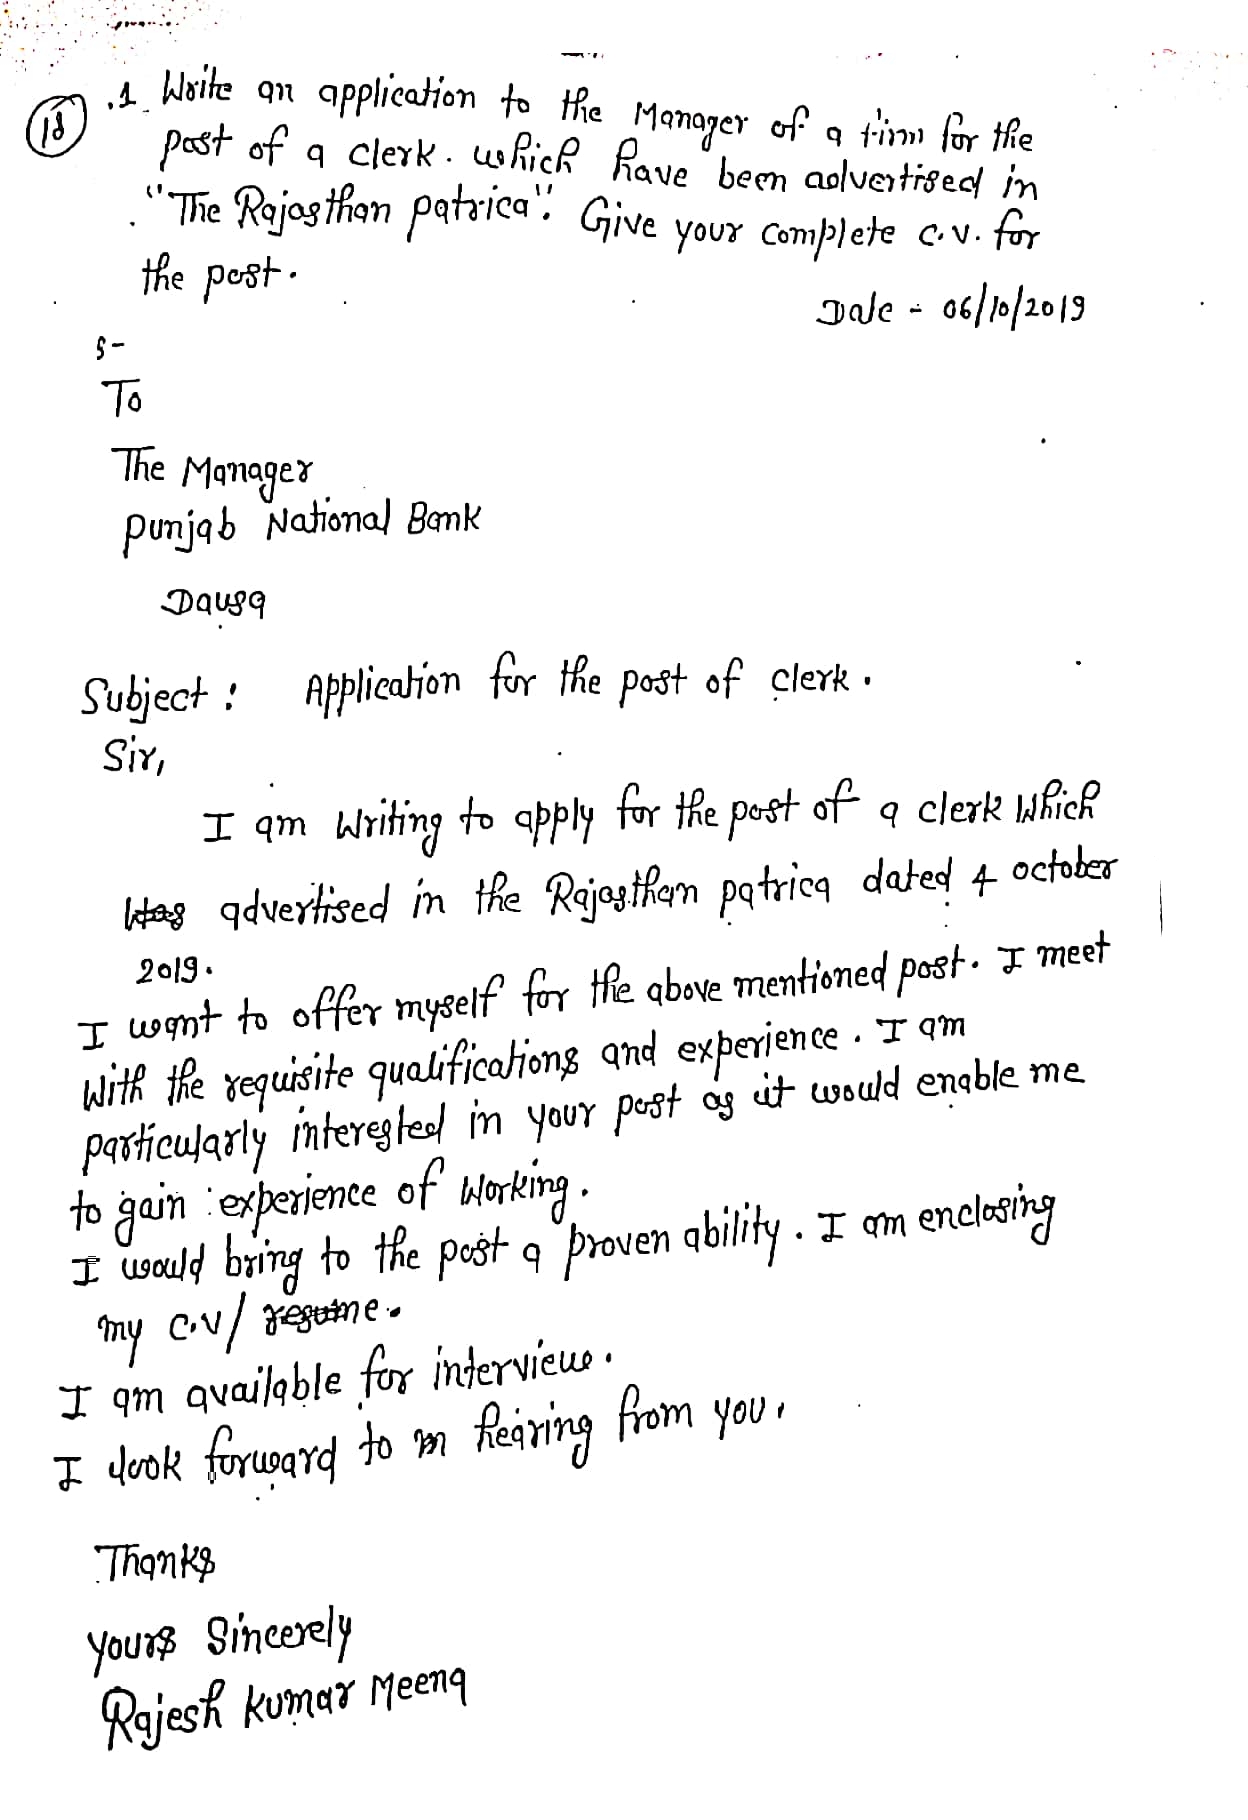 18
.1. Write an application to the Manager of a firm for the
post of a clerk. which have been advertised in
"The Rajasthan patrica". Give your complete c.v. for
the post.
Date - 06/10/2019
S-
To
The Manager
Punjab National Bank
Dausa
Subject : Application for the post of clerk.
Sir,
I am Writing to apply for the post of a clerk Which
Was advertised in the Rajasthan patrica dated 4 october
2019.
I want to offer myself for the above mentioned post. I meet
With the requisite qualifications and experience. I am
particularly interested in your post as it would enable me
to gain experience of Working.
I would bring to the post a proven ability. I am enclosing
my C.V/ resume.
I am available for interview.
I look forward to m hearing from you.
Thanks
yours Sincerely
Rajesh kumar Meena